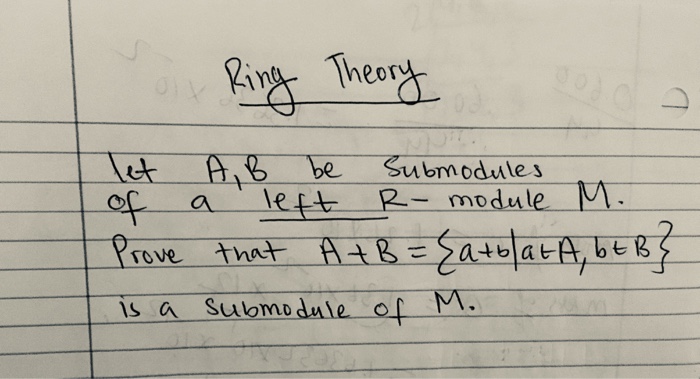 Ring Theory
let A, B be submodules
of a left R- module M.
Prove that A + B = {a+b|a∈A, b∈B}
is a submodule of M.